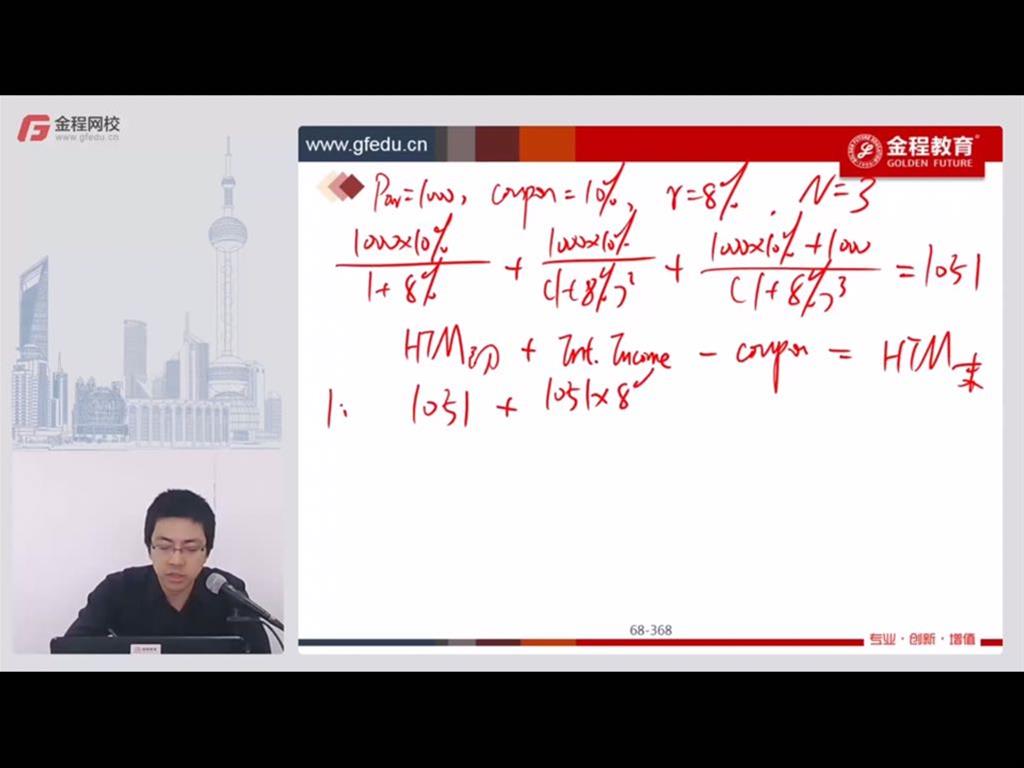 金程网校
www.gfedu.cn
www.gfedu.cn
金程教育
GOLDEN FUTURE
Par=1000, coupon=10%, r=8%, N=3
1000×10%/1+8% + 1000×10%/(1+8%)² + 1000×10%+1000/(1+8%)³ = 1051
HTM初 + Int. Income - coupon = HTM末
1: 1051 + 1051×8%
68-368
专业·创新·增值